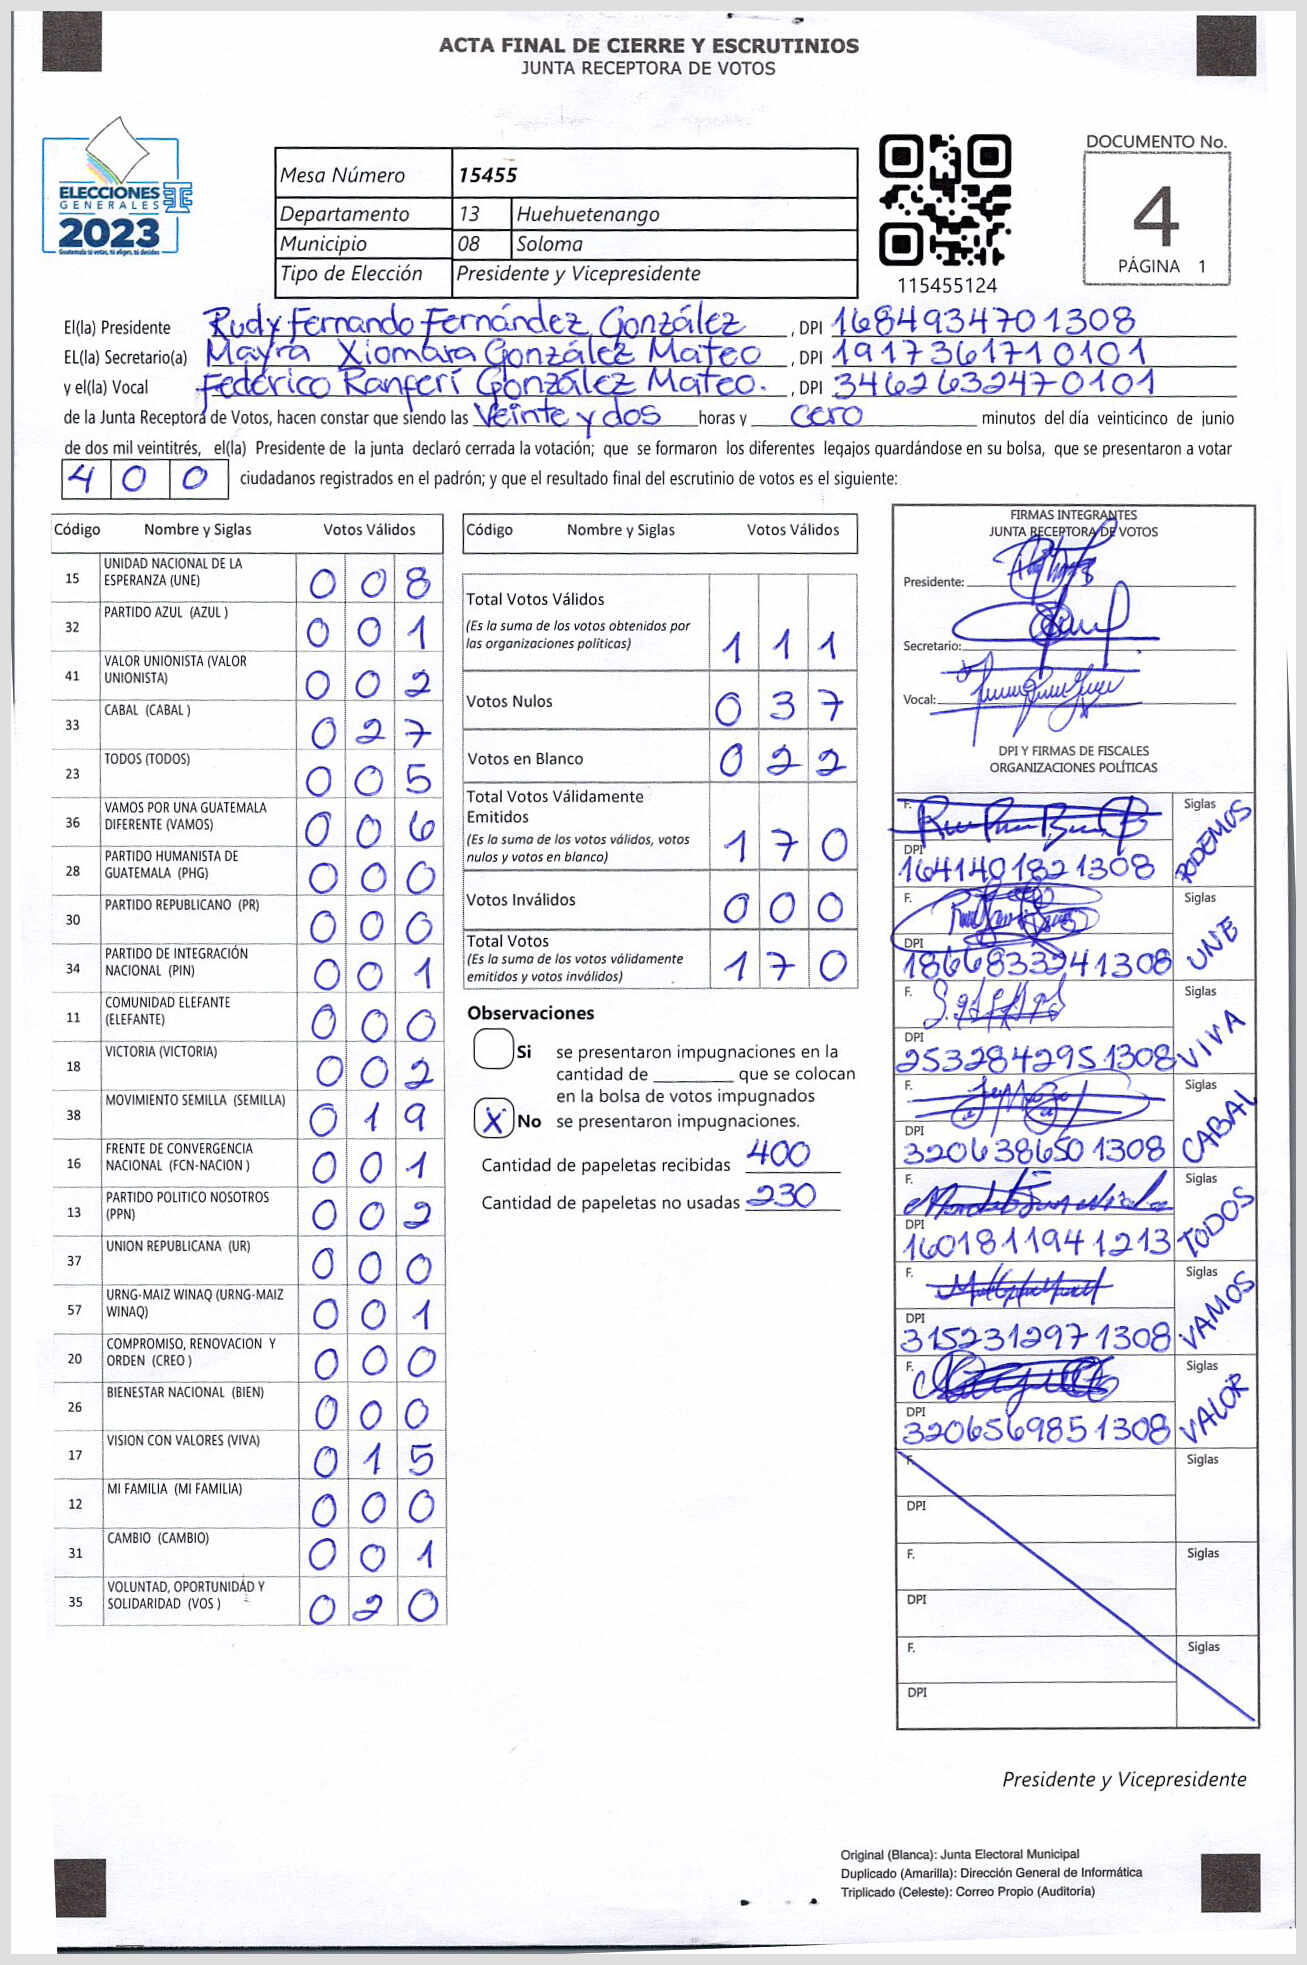 ACTA FINAL DE CIERRE Y ESCRUTINIOS
JUNTA RECEPTORA DE VOTOS
ELECCIONES
GENERALES
2023
Guatemala tú votas, tú eliges, tú decides
Mesa Número 15455
Departamento 13 Huehuetenango
Municipio 08 Soloma
Tipo de Elección Presidente y Vicepresidente
115455124
DOCUMENTO No.
4
PÁGINA 1
El(la) Presidente Rudy Fernando Fernández González, DPI 1684934701308
EL(la) Secretario(a) Mayra Xiomara González Mateo, DPI 1917361710101
y el(la) Vocal Federico Ranferí González Mateo., DPI 3462632470101
de la Junta Receptora de Votos, hacen constar que siendo las Veinte y dos horas y cero minutos del día veinticinco de junio
de dos mil veintitrés, el(la) Presidente de la junta declaró cerrada la votación; que se formaron los diferentes legajos guardándose en su bolsa, que se presentaron a votar
4 0 0 ciudadanos registrados en el padrón; y que el resultado final del escrutinio de votos es el siguiente:
Código Nombre y Siglas Votos Válidos
15 UNIDAD NACIONAL DE LA ESPERANZA (UNE) 0 0 8
32 PARTIDO AZUL (AZUL ) 0 0 1
41 VALOR UNIONISTA (VALOR UNIONISTA) 0 0 2
33 CABAL (CABAL ) 0 2 7
23 TODOS (TODOS) 0 0 5
36 VAMOS POR UNA GUATEMALA DIFERENTE (VAMOS) 0 0 6
28 PARTIDO HUMANISTA DE GUATEMALA (PHG) 0 0 0
30 PARTIDO REPUBLICANO (PR) 0 0 0
34 PARTIDO DE INTEGRACIÓN NACIONAL (PIN) 0 0 1
11 COMUNIDAD ELEFANTE (ELEFANTE) 0 0 0
18 VICTORIA (VICTORIA) 0 0 2
38 MOVIMIENTO SEMILLA (SEMILLA) 0 1 9
16 FRENTE DE CONVERGENCIA NACIONAL (FCN-NACION ) 0 0 1
13 PARTIDO POLITICO NOSOTROS (PPN) 0 0 2
37 UNION REPUBLICANA (UR) 0 0 0
57 URNG-MAIZ WINAQ (URNG-MAIZ WINAQ) 0 0 1
20 COMPROMISO, RENOVACION Y ORDEN (CREO ) 0 0 0
26 BIENESTAR NACIONAL (BIEN) 0 0 0
17 VISION CON VALORES (VIVA) 0 1 5
12 MI FAMILIA (MI FAMILIA) 0 0 0
31 CAMBIO (CAMBIO) 0 0 1
35 VOLUNTAD, OPORTUNIDAD Y SOLIDARIDAD (VOS ) 0 2 0
Código Nombre y Siglas Votos Válidos
Total Votos Válidos
(Es la suma de los votos obtenidos por
las organizaciones políticas) 1 1 1
Votos Nulos 0 3 7
Votos en Blanco 0 2 2
Total Votos Válidamente
Emitidos
(Es la suma de los votos válidos, votos
nulos y votos en blanco) 1 7 0
Votos Inválidos 0 0 0
Total Votos
(Es la suma de los votos válidamente
emitidos y votos inválidos) 1 7 0
Observaciones
Si se presentaron impugnaciones en la
cantidad de ________ que se colocan
en la bolsa de votos impugnados
X No se presentaron impugnaciones.
Cantidad de papeletas recibidas 400
Cantidad de papeletas no usadas 230
FIRMAS INTEGRANTES
JUNTA RECEPTORA DE VOTOS
Presidente:
Secretario:
Vocal:
DPI Y FIRMAS DE FISCALES
ORGANIZACIONES POLÍTICAS
F. Siglas PODEMOS
DPI 1641401821308
F. Siglas UNE
DPI 1866833241308
F. Siglas VIVA
DPI 2532842951308
F. Siglas CABAL
DPI 3206386501308
F. Siglas TODOS
DPI 1601811941213
F. Siglas VAMOS
DPI 3152312971308
F. Siglas VALOR
DPI 3206569851308
F. Siglas
DPI
F. Siglas
DPI
F. Siglas
DPI
Presidente y Vicepresidente
Original (Blanca): Junta Electoral Municipal
Duplicado (Amarilla): Dirección General de Informática
Triplicado (Celeste): Correo Propio (Auditoría)